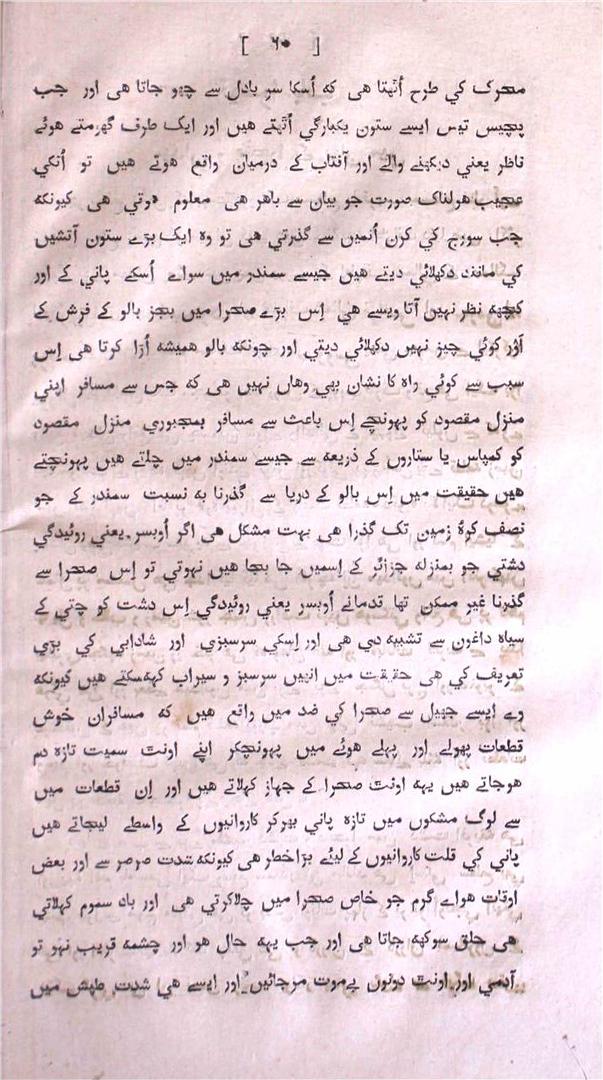 [ ٦٠ ]
متحرک کي طرح اُٹھتا ھی که اُسکا سر بادل سے چھو جاتا ھی اور جب
پچیس تیس ایسے ستون یکبارگي اُٹھتے ھیں اور ایک طرف گھومتے ھوئے
ناظر یعني دیکھنے والے اور آفتاب کے درمیان واقع ھوتے ھیں تو اُنکي
عجیب ھولناک صورت جو بیان سے باھر ھی معلوم ھوتي ھی کیونکه
جب سورج کي کرن اُنمیں سے گذرتي ھی تو وہ ایک بڑے ستون آتشیں
کي مانند دکھلائي دیتے ھیں جیسے سمندر میں سواے اُسکے پاني کے اور
کچھه نظر نہیں آتا ویسے ھي اِس بڑے صحرا میں بجز بالو کے فرش کے
اَوْر کوئي چیز نہیں دکھلائي دیتي اور چونکه بالو ھمیشه اُڑا کرتا ھی اِس
سبب سے کوئي راہ کا نشان بھي وھاں نہیں ھی که جس سے مسافر اپني
منزل مقصود کو پہونچے اِس باعث سے مسافر بمجبوري منزل مقصود
کو کمپاس یا ستاروں کے ذریعه سے جیسے سمندر میں چلتے ھیں پہونچتے
ھیں حقیقت میں اِس بالو کے دریا سے گذرنا به نسبت سمندر کے جو
نصف کرۂ زمین تک گذرا ھی بہت مشکل ھی اگر اُوبسر یعني روئیدگي
دشتي جو بمنزله جزائر کے اِسمیں جا بجا ھیں نہوتي تو اِس صحرا سے
گذرنا غیر ممکن تھا قدمانے اُوبسر یعني روئیدگي اِس دشت کو چتي کے
سیاہ داغون سے تشبیه دي ھی اور اِسکي سرسبزي اور شادابي کي بڑي
تعریف کي ھی حقیقت میں انہیں سرسبز و سیراب کہه سکتے ھیں کیونکه
وے ایسے جھیل سے صحرا کي ضد میں واقع ھیں که مسافران خوش
قطعات پھولے اور پھلے ھوئے میں پہونچکر اپنے اونٹ سمیت تازہ دم
ھوجاتے ھیں یہه اونٹ صحرا کے جہاز کہلاتے ھیں اور اِن قطعات میں
سے لوگ مشکوں میں تازہ پاني بھرکر کاروانیوں کے واسطے لیجاتے ھیں
پاني کي قلت کاروانیوں کے لیئے بڑا خطر ھی کیونکه شدت صرصر سے اور بعض
اوقات ھواے گرم جو خاص صحرا میں چلاکرتي ھی اور باد سموم کہلاتي
ھی حلق سوکھه جاتا ھی اور جب یہه حال ھو اور چشمه قریب نہو تو
آدمي اور اونٹ دونوں بےموت مرجائیں اور ایسے ھي شدت طپش میں